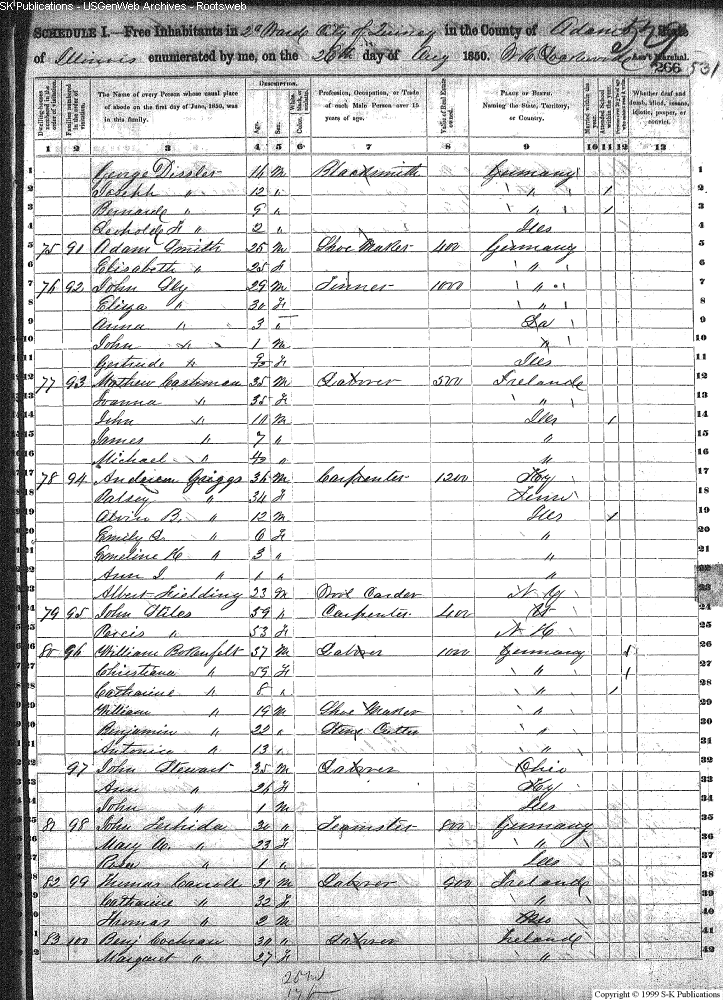 SK Publications - USGenWeb Archives - Rootsweb
SCHEDULE I.—Free Inhabitants in 2d Ward City of Quincy in the County of Adams State
of Illinois enumerated by me, on the 26th day of Aug 1850. Ass't Marshal.
266 531
Dwelling-houses numbered in the order of visitation. Families numbered in the order of visitation. The Name of every Person whose usual place of abode on the first day of June, 1850, was in this family. DESCRIPTION. Age. Sex. Color. Profession, Occupation, or Trade of each Male Person over 15 years of age. Value of Real Estate owned. PLACE OF BIRTH. Naming the State, Territory, or Country. Married within the year. Attended School within the year. Whether deaf and dumb, blind, insane, idiotic, pauper, or convict.
1 2 3 4 5 6 7 8 9 10 11 12 13
1 George Dissler 14 M Blacksmith Germany 1
2 Joseph " 12 " " / 2
3 Bernarde " 9 " " / 3
4 " 2 " Iles 4
5 75 91 Adam Smith 25 M Shoe Maker 400 Germany 5
6 Elisabeth " 25 F " 6
7 76 92 John 29 M Tinner 1000 " 7
8 Eliza " 30 F " 8
9 Anna " 3 " La 9
10 John " 1 M " 10
11 Gertrude " F Iles 11
12 77 93 Mathew Cashman 35 M Laborer 500 Irelande 12
13 Joanna " 35 F " 13
14 John " 10 M Iles / 14
15 James " 7 " " 15
16 Michael " " " 16
17 78 94 Griggs 36 M Carpenter 1200 Ky 17
18 Patsey " 34 F Tenn 18
19 Alvin B. " 12 M Iles / 19
20 Emily " 6 F " 20
21 Emeline K " 3 " " 21
22 Ann J. " 1 " " 22
23 Albert Fielding 23 M Wool Carder N. Y 23
24 79 95 John Stiles 59 " Carpenter 400 24
25 Percis " 53 F N. H. 25
26 80 96 William Bokenfelt 57 M Laborer 1000 Germany / 26
27 Christiana " 59 F " / 27
28 Catharine " 8 " " / 28
29 William " 19 M Shoe Maker " 29
30 Benjamin " 22 " Stone Cutter " 30
31 Antonice " 13 " " 31
32 97 John Stewart 35 M Laborer Ohio 32
33 Ann " 26 F Ky 33
34 John " 1 M Iles 34
35 81 98 John 30 " Teamster 800 Germany 35
36 Mary A. " 23 F " 36
37 Rosa " 1 " Iles 37
38 82 99 Thomas Carroll 31 M Laborer 900 Irelande 38
39 Catharine " 32 F " 39
40 Thomas " 2 M 40
41 83 100 Benj Cochran 30 " Laborer Irelande 41
42 Margaret " 27 F " 42
Copyright © 1999 S-K Publications